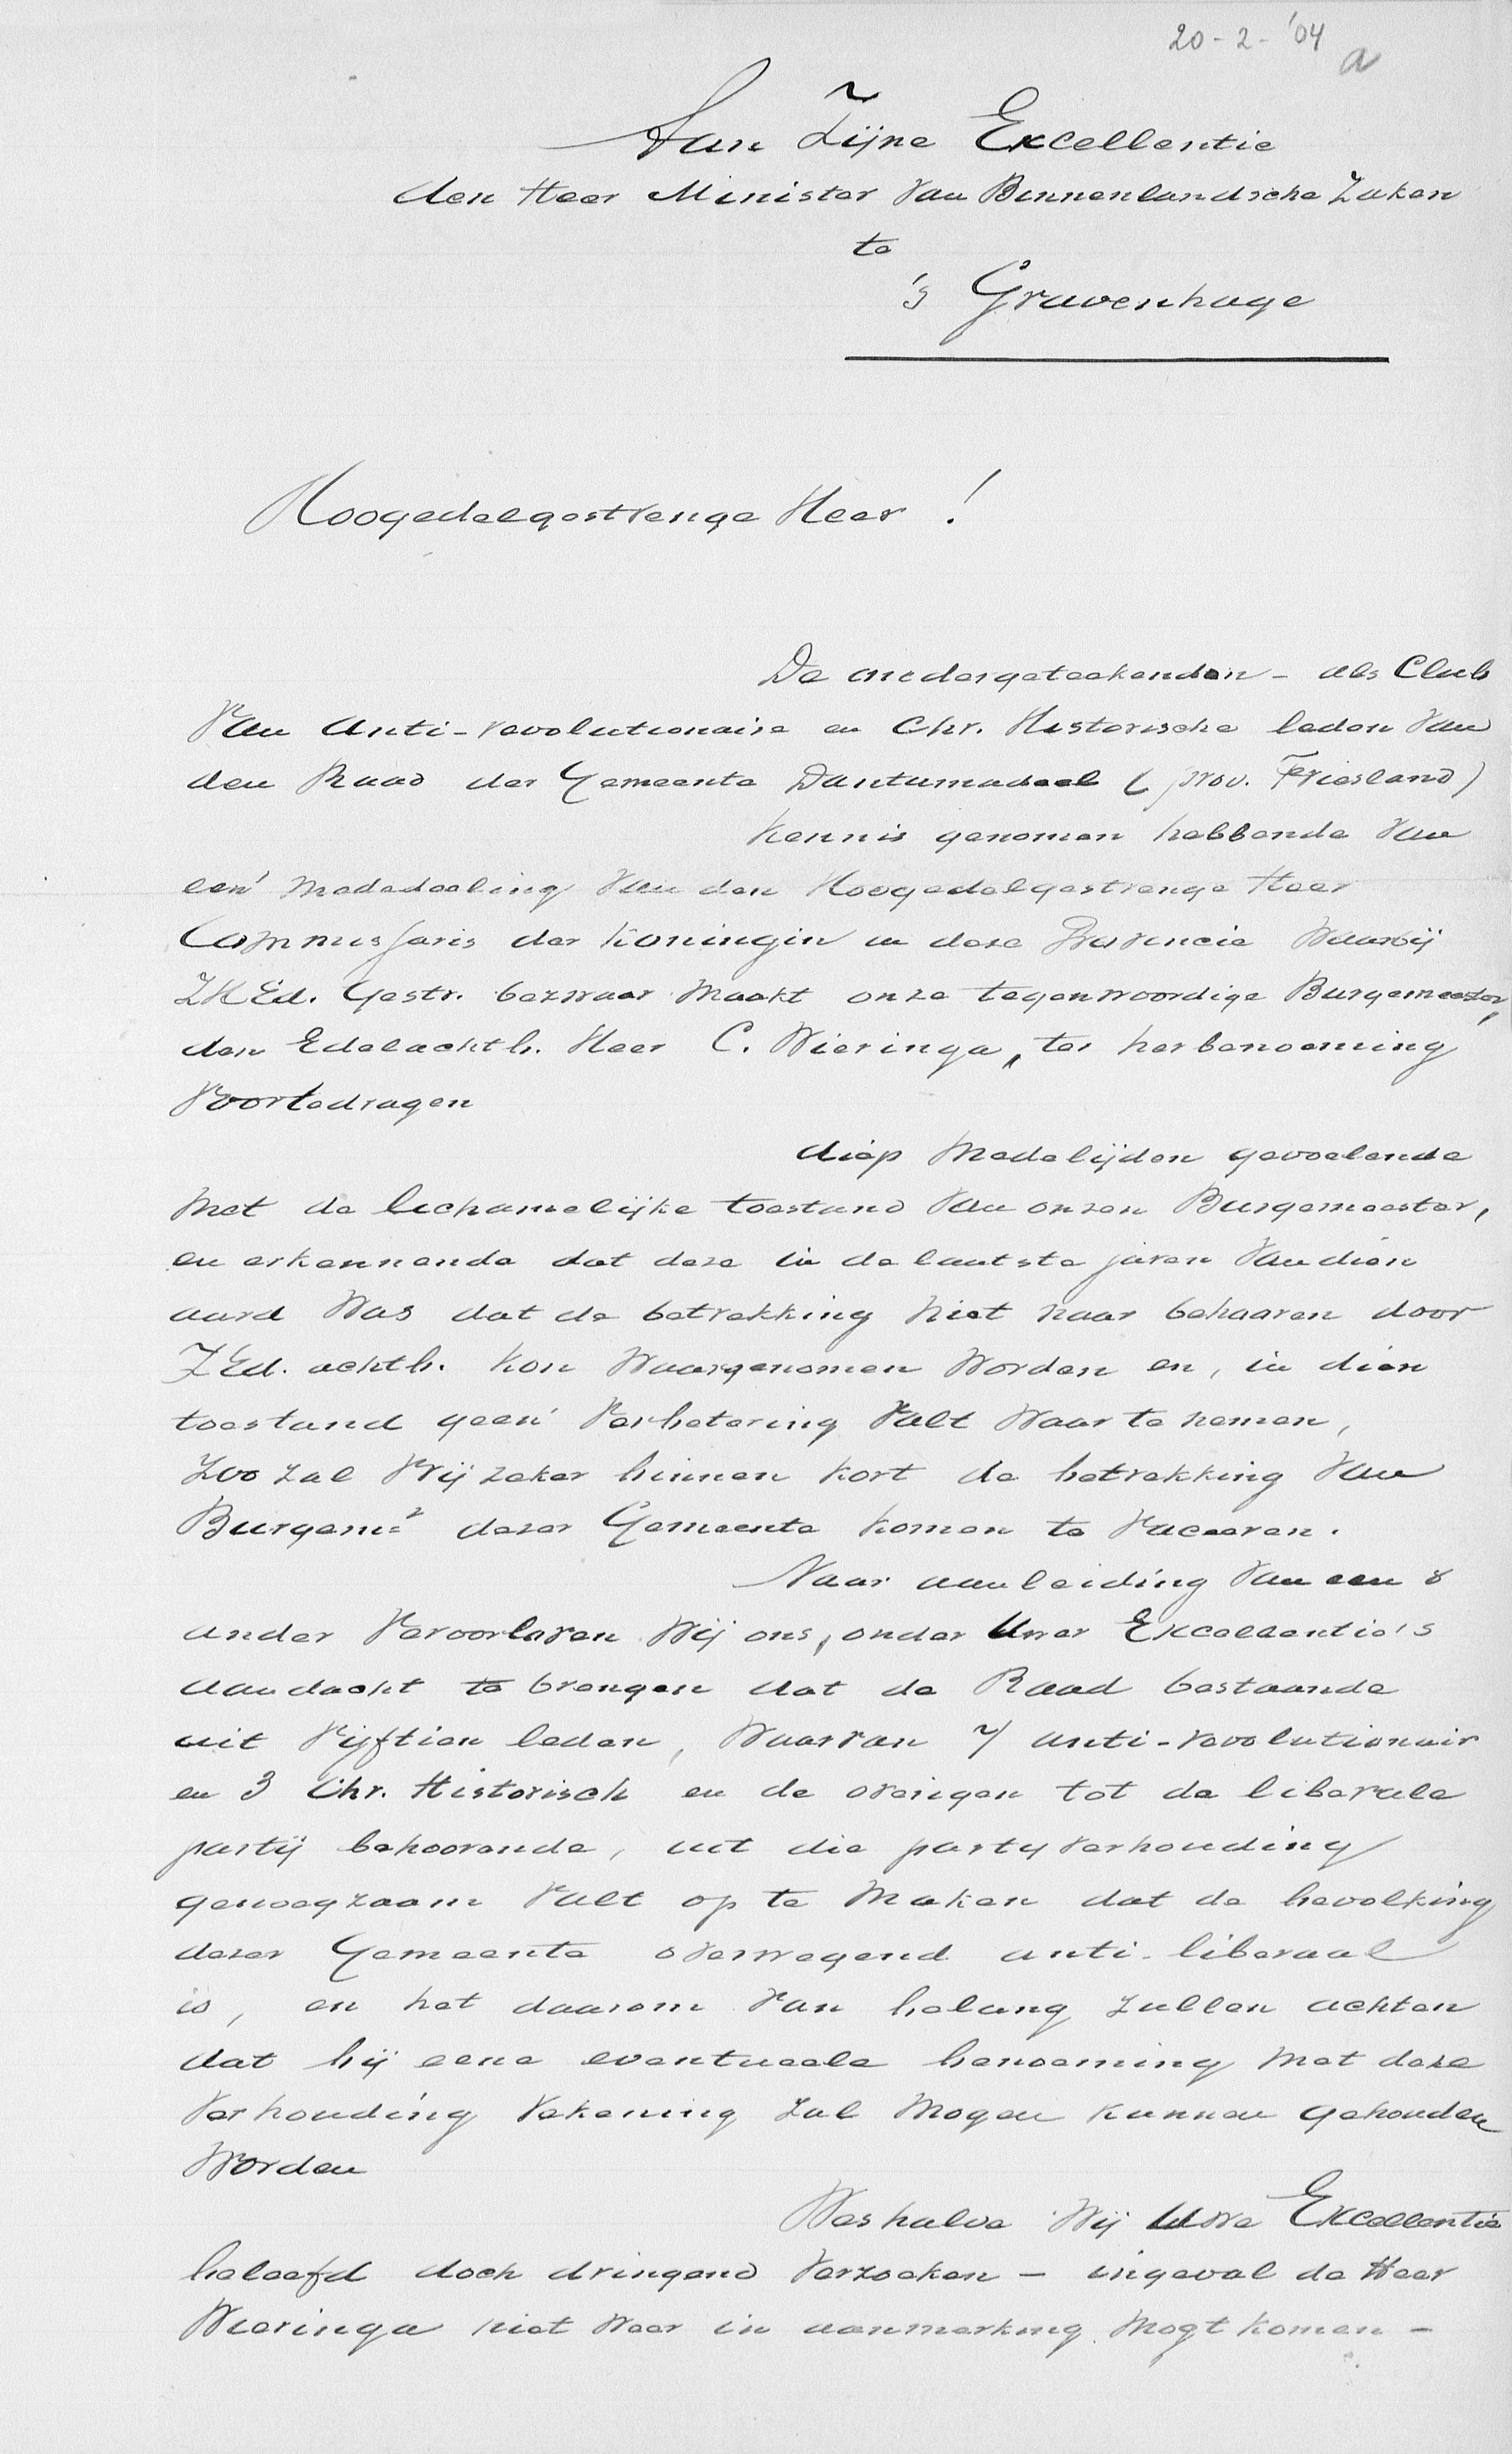 20-2-'04
a
Aan Zijne Excellentie
den Heer Minister van Binnenlandsche Zaken
te
's Gravenhage
Hoogedelgestrenge Heer!
De ondergeteekenden - als Club
van Anti-revolutionaire en Chr. Historische leden van
den Raad der Gemeente Dantumadeel (prov. Friesland)
kennis genomen hebbende van
een mededeeling van den Hoogedelgestrenge Heer
Commissaris der Koningin in deze Provincie waarbij
ZHEd. Gestr. bezwaar maakt onze tegenwoordige Burgemeester,
den Edelachtb. Heer C. Wieringa, ter herbenoeming
voortedragen
diep medelijden gevoelende
met de lichamelijke toestand van onzen Burgemeester,
en erkennende dat deze in de laatste jaren van dien
aard was dat de betrekking niet naar behooren door
ZEd. achtb. kon waargenomen worden en, in dien
toestand geen verbetering valt waar te nemen,
zoo zal vrij zeker binnen kort de betrekking van
Burgemr dezer Gemeente komen te vaceeren.
Naar aanleiding van een &
ander veroorloven wij ons, onder Uwer Excellentie's
aandacht te brengen dat de Raad bestaande
uit vijftien leden, waarvan 7 anti-revolutionair
en 3 Chr. Historisch en de overigen tot de liberale
partij behoorende, uit die partyverhouding
genoegzaam valt op te maken dat de bevolking
dezer Gemeente overwegend anti-liberaal
is, en het daarom van belang zullen achten
dat bij eene eventueele benoeming met deze
verhouding rekening zal mogen kunnen gehouden
worden
Weshalve wij Uwe Excellentie
beleefd doch dringend verzoeken - ingeval de Heer
Wieringa niet weer in aanmerking mogt komen -